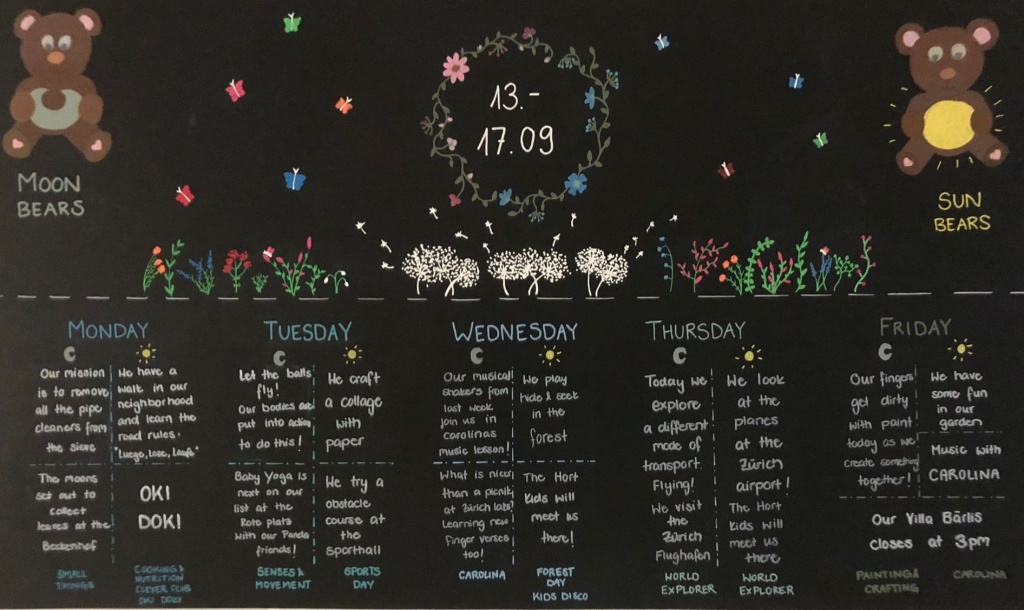 13.-
17.09
MOON
BEARS
SUN
BEARS
MONDAY
Our mission
is to remove
all the pipe
cleaners from
the sieve
The moons
set out to
collect
leaves at the
Beckenhof
SMALL
THINGS
We have a
walk in our
neighborhood
and learn the
road rules.
"Luege, lose, laufe"
OKI
DOKI
COOKING &
NUTRITION
CLEVER CLUB
OKI DOKI
TUESDAY
Let the balls
fly!
Our bodies are
put into action
to do this!
Baby Yoga is
next on our
list at the
Rote platz
with our Panda
friends!
SENSES &
MOVEMENT
We craft
a collage
with
paper
We try a
obstacle
course at
the
Sporthall
SPORTS
DAY
WEDNESDAY
Our musical
shakers from
last week
join us in
carolinas
music lesson!
What is nicer
than a picnic
at Zürich lab?
Learning new
finger verses
too!
CAROLINA
We play
hide & seek
in the
forest
The Hort
kids will
meet us
there!
FOREST
DAY
KIDS DISCO
THURSDAY
Today we
explore
a different
mode of
transport.
Flying!
We visit
the
Zürich
Flughafen
WORLD
EXPLORER
We look
at the
planes
at the
Zürich
airport!
The Hort
kids will
meet us
there
WORLD
EXPLORER
FRIDAY
Our fingers
get dirty
with paint
today as we
create something
together!
We have
some fun
in our
garden
Music with
CAROLINA
Our Villa Bärlis
closes at 3pm
PAINTING &
CRAFTING
CAROLINA